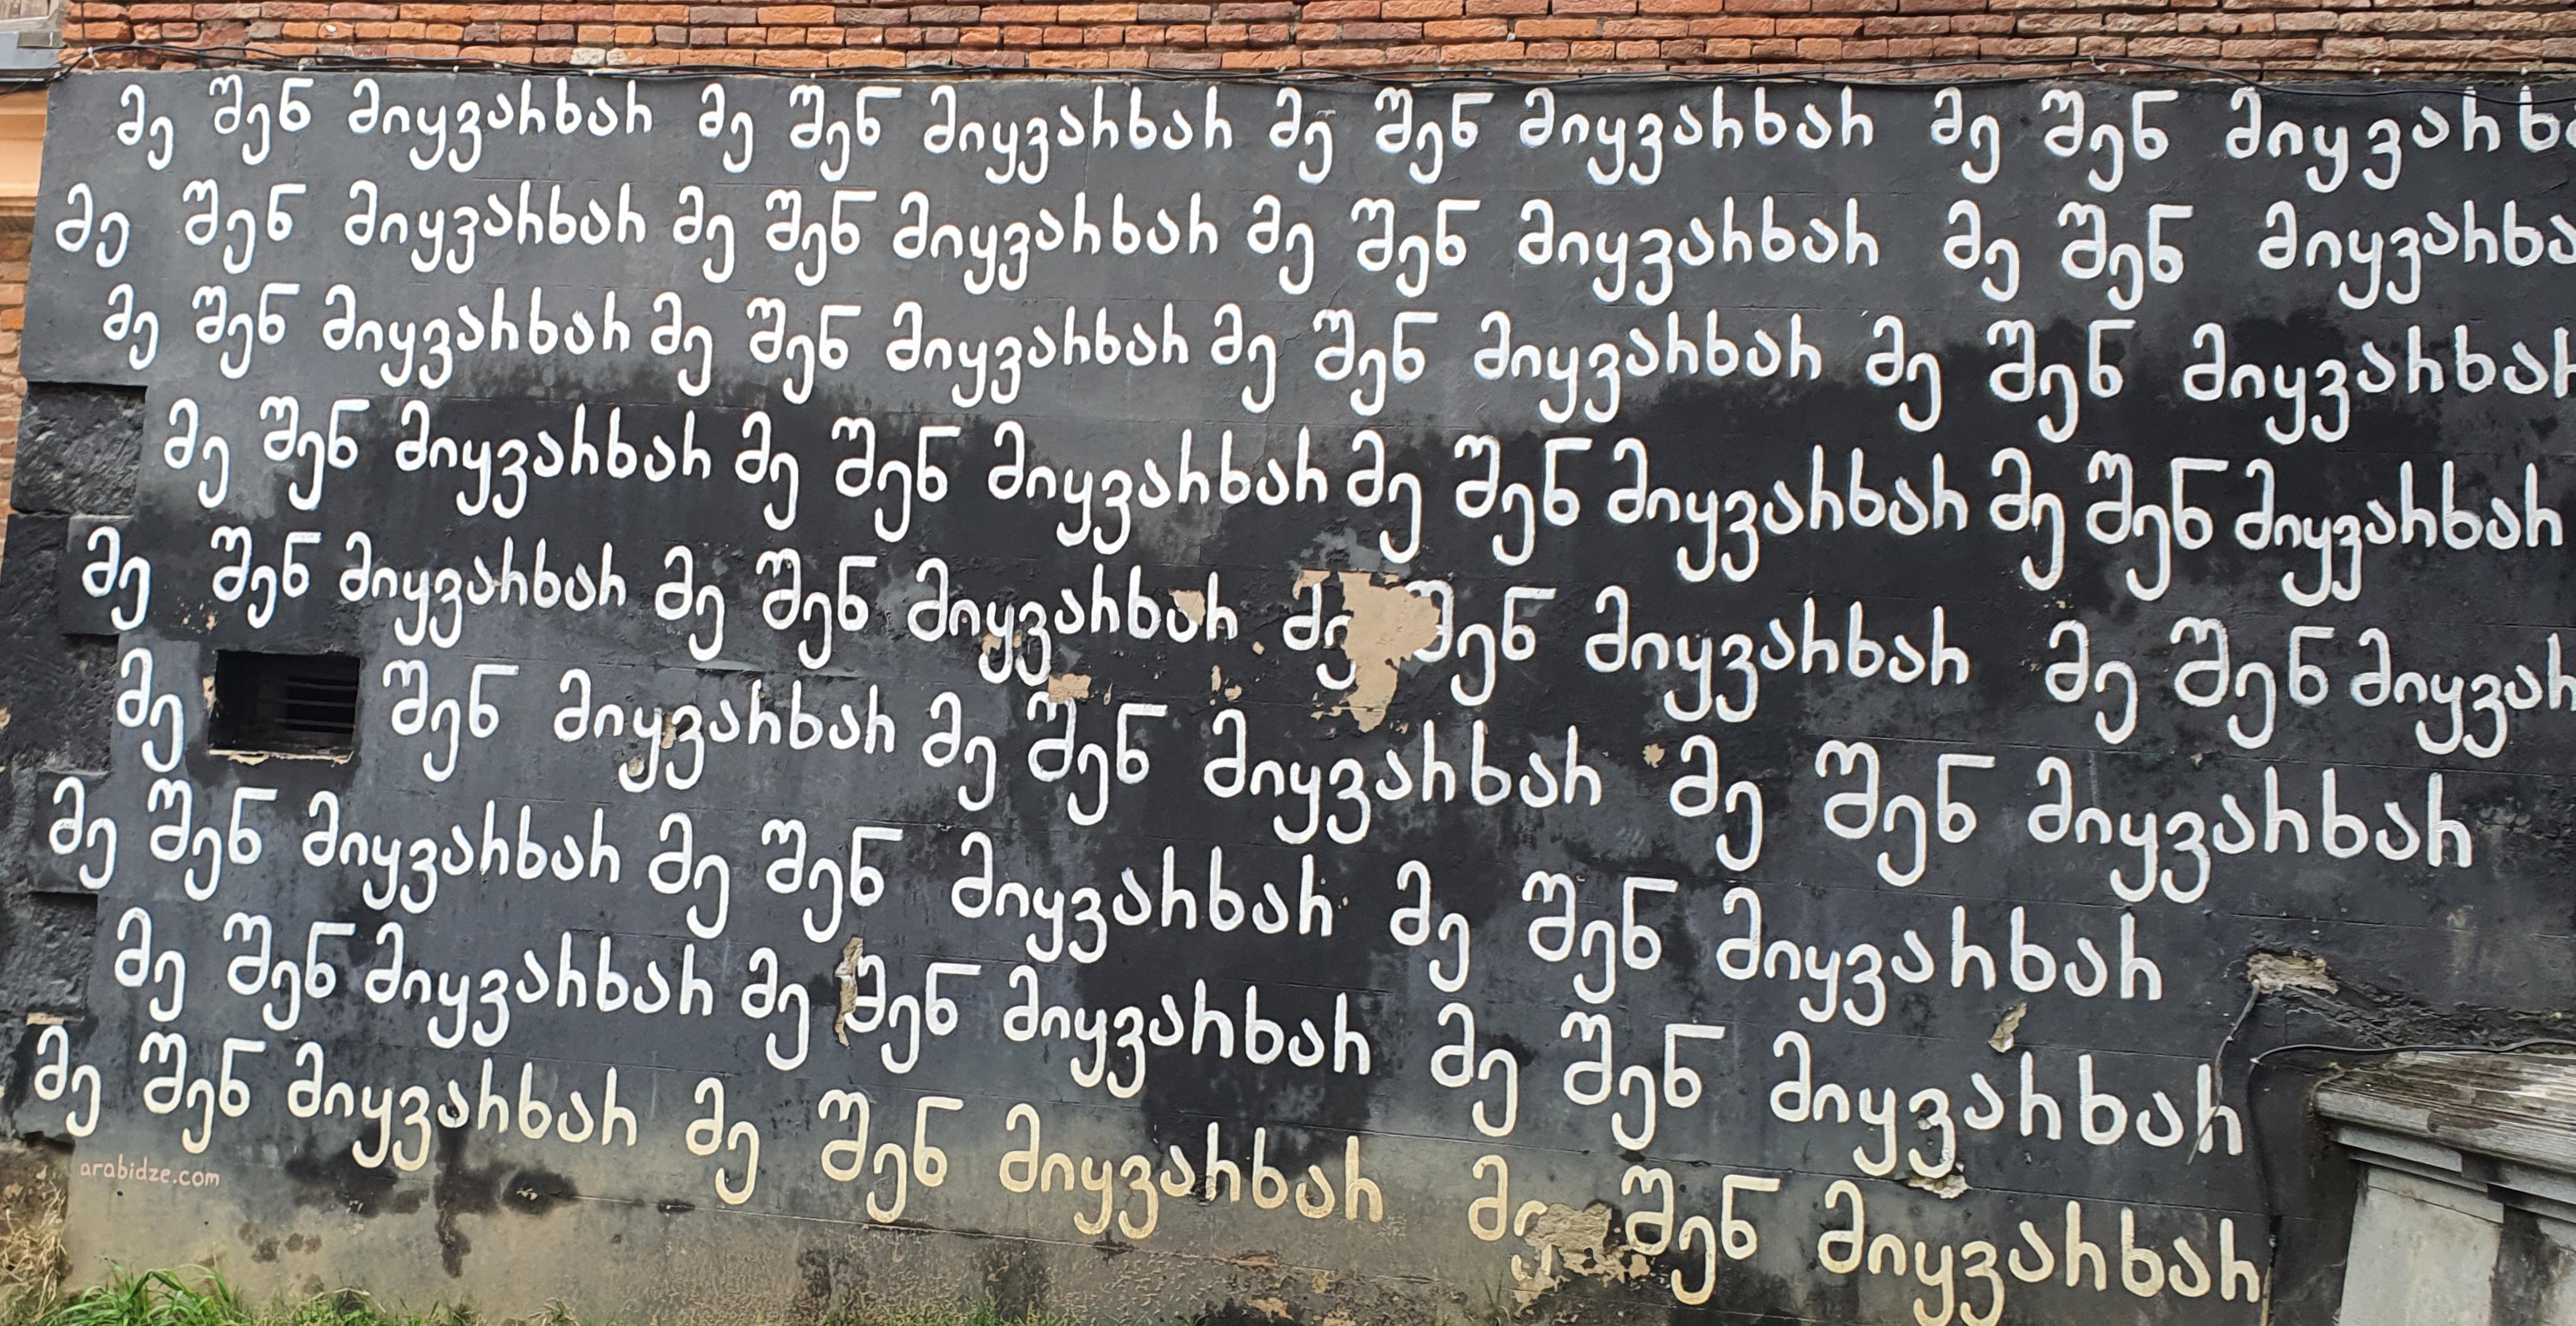 მე შენ მიყვარხარ მე შენ მიყვარხარ მე შენ მიყვარხარ მე შენ მიყვარხა
მე შენ მიყვარხარ მე შენ მიყვარხარ მე შენ მიყვარხარ მე შენ მიყვარხა
მე შენ მიყვარხარ მე შენ მიყვარხარ მე შენ მიყვარხარ მე შენ მიყვარხარ
მე შენ მიყვარხარ მე შენ მიყვარხარ მე შენ მიყვარხარ მე შენ მიყვარხარ
მე შენ მიყვარხარ მე შენ მიყვარხარ მე შენ მიყვარხარ მე შენ მიყვარ
მე შენ მიყვარხარ მე შენ მიყვარხარ მე შენ მიყვარხარ
მე შენ მიყვარხარ მე შენ მიყვარხარ მე შენ მიყვარხარ
მე შენ მიყვარხარ მე შენ მიყვარხარ მე შენ მიყვარხარ
მე შენ მიყვარხარ მე შენ მიყვარხარ მე შენ მიყვარხარ
arabidze.com